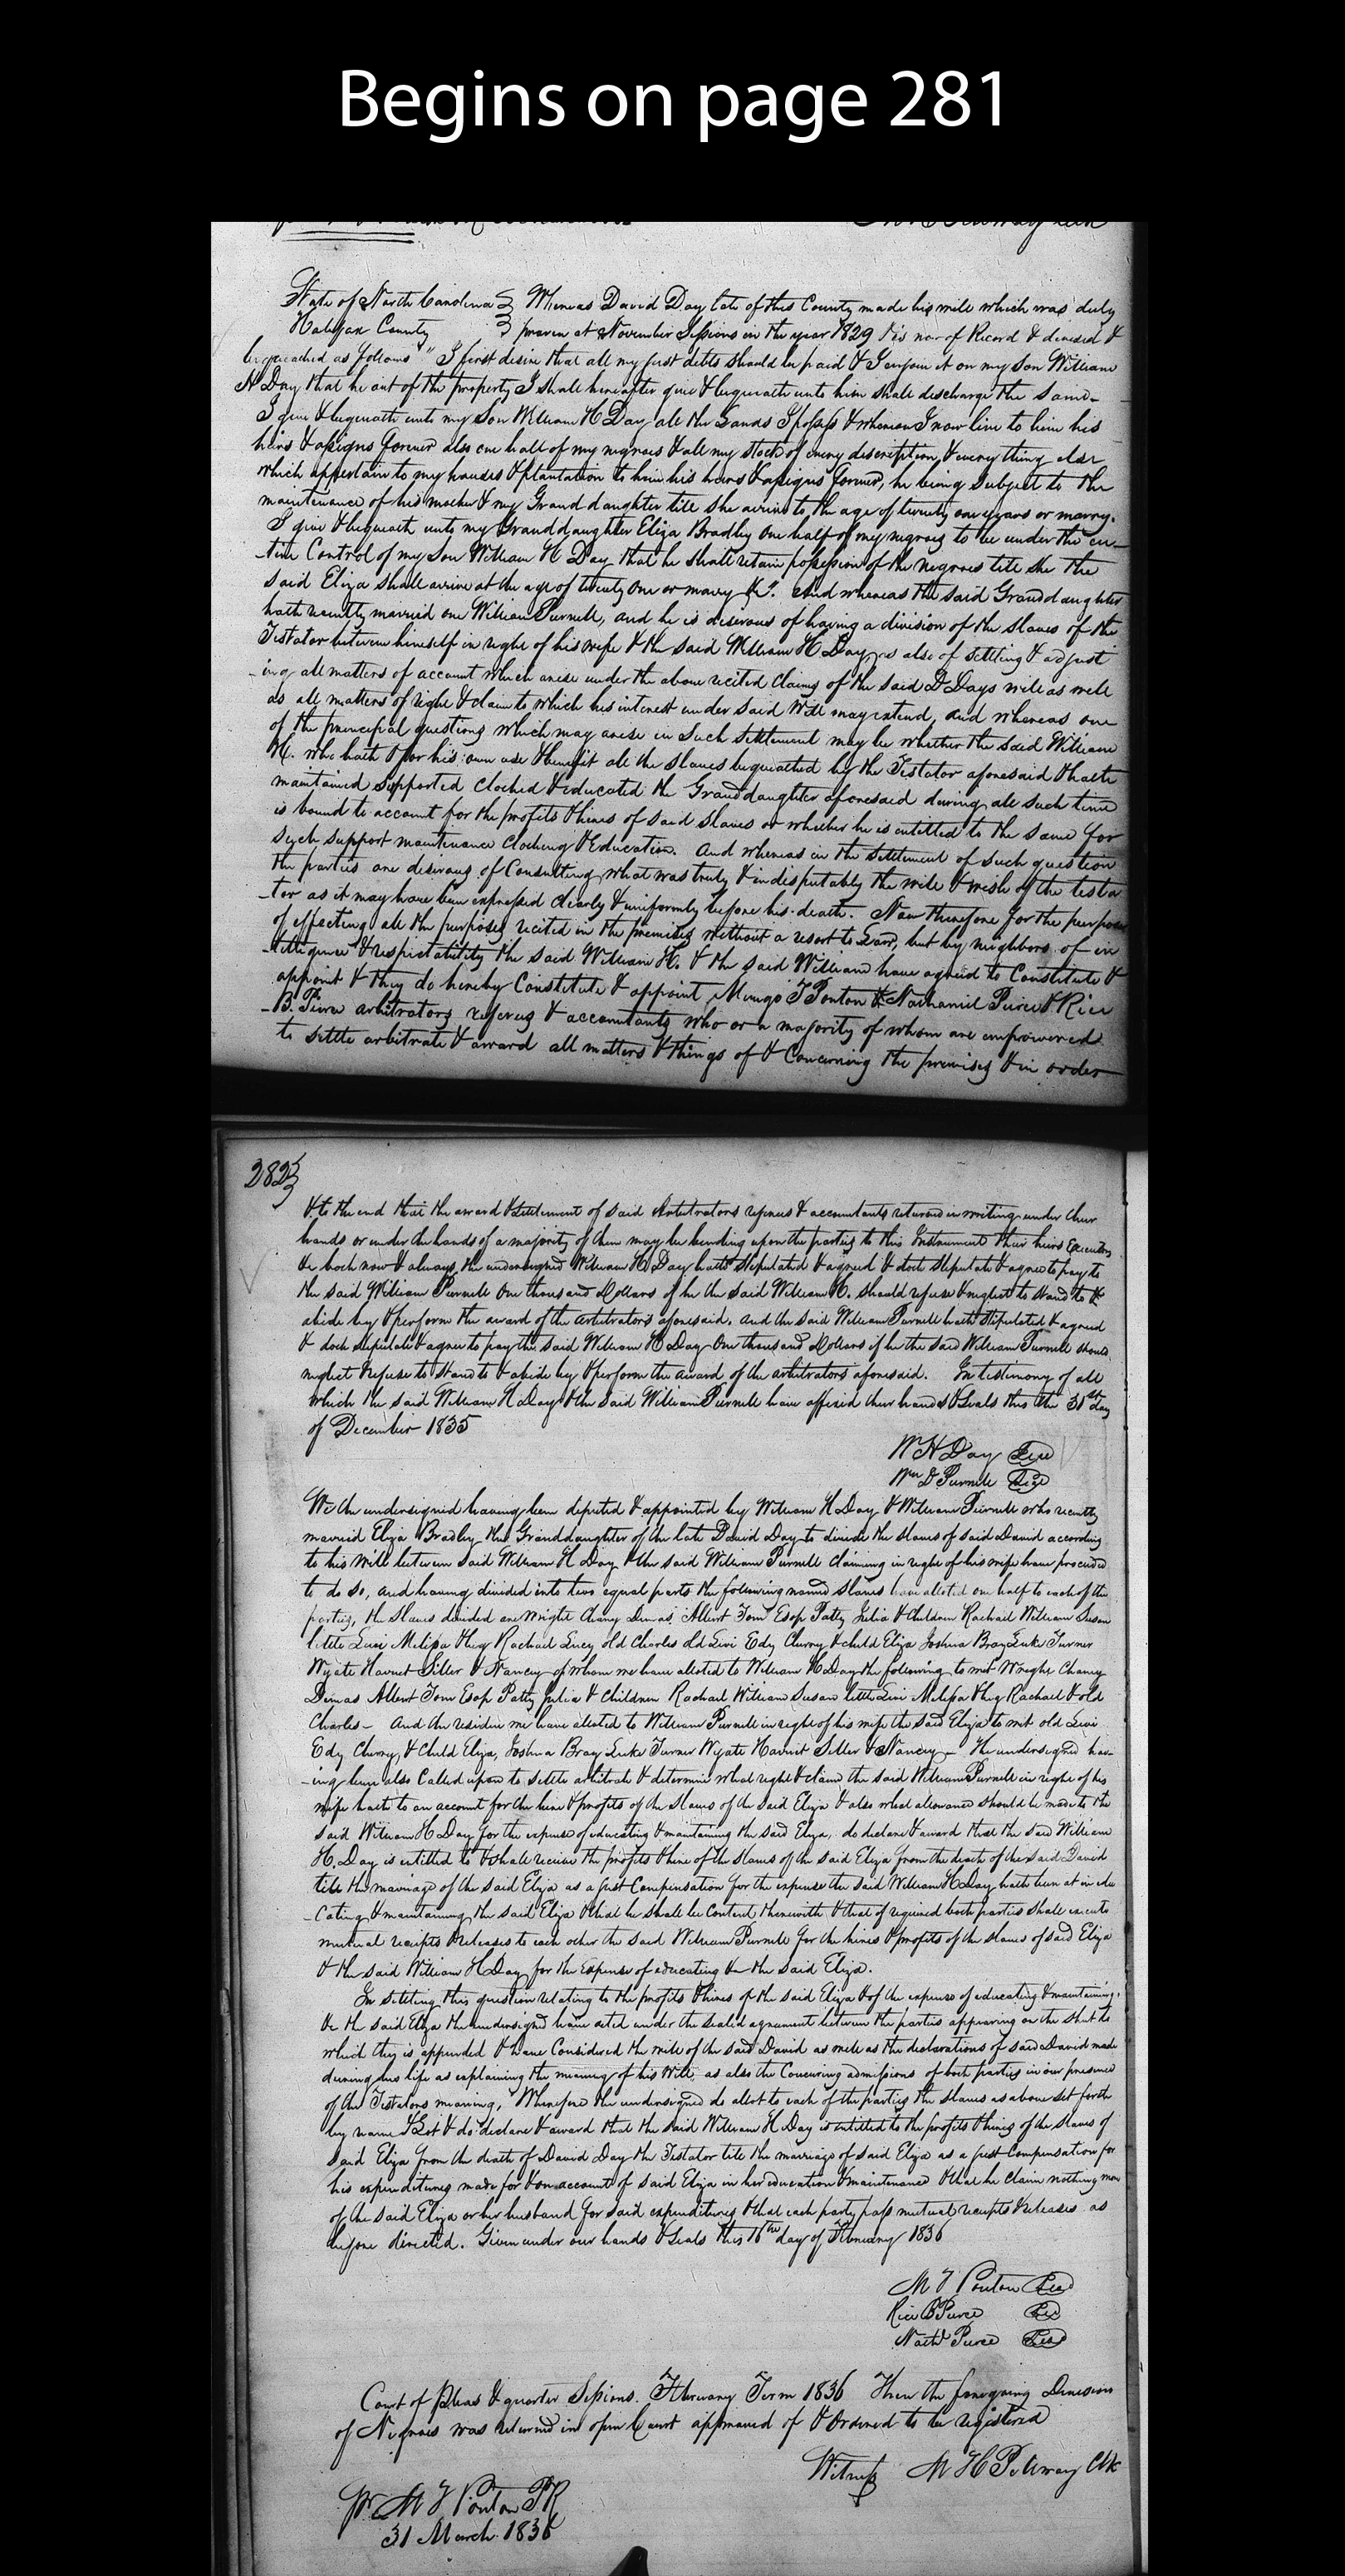 Begins on page 281
State of North Carolina } Whereas David Day late of this County made his will which was duly
Halifax County } proven at November Sessions in the year 1829 & is now of Record & devised &
bequeathed as follows " I first desire that all my just debts should be paid & I enjoin it on my son William
H Day that he out of the property I shall hereafter give & bequeath unto him shall discharge the same
I give & bequeath unto my Son William H Day all the Lands I possess & whereon I now live to him his
heirs & assigns forever also one half of my negroes & all my stock of every discription, & every thing else
which appertain to my houses & plantation to him his heirs & assigns forever, he being subject to the
maintenance of his mother & my Grand daughter till she arrive to the age of twenty one years or marry.
I give & bequeath unto my Granddaughter Eliza Bradley one half of my negroes to be under the en-
-tire Control of my son William H Day that he shall retain possession of the negroes till she the
said Eliza shall arrive at the age of twenty one or marry &c". And whereas the said Granddaughter
hath recently married one William Purnell, and he is desirous of having a division of the slaves of the
Testator between himself in right of his wife & the said William H Day, as also of settling & adjust
-ing all matters of account which arise under the above recited Claims of the said D Days will as well
as all matters of right & claim to which his interest under said Will may extend, and whereas one
of the principal questions which may arise in such settlement may be whether the said William
H. who hath & for his own use & benefit all the slaves bequeathed by the Testator aforesaid & hath
maintained supported clothed & educated the Granddaughter aforesaid during all such time
is bound to account for the profits & hires of said slaves or whether he is entitled to the same for
such support maintenance clothing & Education. And whereas in the settlement of such question
the parties are desirous of Consulting what was truly & indisputably the will & wish of the testa
-tor as it may have been expressed clearly & uniformly before his death. Now therefore for the purpose
of effecting all the purposes recited in the premises without a resort to Law, but by neighbors of in
-telligence & respectability the said William H. & the said William have agreed to Constitute &
appoint & they do hereby Constitute & appoint Mungo T Ponton & Nathaniel Purce & Rice
-B. Pierce arbitrators referees & accountants who or a majority of whom are empowered
to settle arbitrate & award all matters & things of & Concerning the premises & in order
282
& to the end that the award & settlement of said Arbitrators referees & accountants returned in writing under their
hands or under the hands of a majority of them may be binding upon the parties to this Instrument their heirs Executors
&c both now & always, the undersigned William H Day hath stipulated & agreed & doth stipulate & agree to pay to
the said William Purnell One thousand Dollars if he the said William H. should refuse & neglect to stand to &
abide by & perform the award of the arbitrators aforesaid. And the said William Purnell hath stipulated & agreed
& doth stipulate & agree to pay the said William H Day One thousand Dollars if he the said William Purnell should
neglect & refuse to stand to & abide by & perform the award of the arbitrators aforesaid. In testimony of all
which the said William H Day & the said William Purnell have affixed their hands & Seals this the 31st day
of December 1835
W H Day Seal
Wm D Purnell Seal
We the undersigned having been deputed & appointed by William H Day & William Purnell who recently
married Eliza Bradley the Granddaughter of the late David Day to divide the slaves of said David according
to his Will between said William H Day & the said William Purnell claiming in right of his wife have proceeded
to do so, and having divided into two equal parts the following named slaves have alloted one half to each of the
parties, the slaves divided are Wright Chany Dimas Albert Tom Esop Patty Julia & Children Rachael William Susan
little Levi Melissa & big Rachael Lucy old Charles old Levi Edy Cherry & child Eliza Joshua Bray Luke Turner
Wyate Harriet Siller & Nancy of whom we have alloted to William H Day the following to wit Wright Chaney
Dimas Albert Tom Esop Patty Julia & Children Rachael William Susan little Levi Melissa & big Rachael & old
Charles - And the residue we have alloted to William Purnell in right of his wife the said Eliza to wit old Levi
Edy Cherry, & Child Eliza, Joshua Bray Luke Turner Wyate Harriet Siller & Nancy - The undersigned hav-
-ing been also Called upon to settle arbitrate & determine what right & claim the said William Purnell in right of his
wife hath to an account for the hire & profits of the slaves of the said Eliza & also what allowance should be made to the
said William H Day for the expense of educating & maintaining the said Eliza, do declare & award that the said William
H. Day is entitled to & shall receive the profits & hire of the slaves of the said Eliza from the death of the said David
till the marriage of the said Eliza as a just Compensation for the expense the said William H Day hath been at in edu
-cating & maintaining the said Eliza & that he shall be Content therewith & that if required both parties shall execute
mutual receipts & releases to each other the said William Purnell for the hires & profits of the slaves of said Eliza
& the said William H Day for the Expense of educating &c the said Eliza.
In settling this question relating to the profits & hires of the said Eliza & of the expense of educating & maintaining
&c the said Eliza the undersigned have acted under the sealed agreement between the parties appearing on the sheet to
which this is appended & have Considered the will of the said David as well as the declarations of said David made
during his life as explaining the meaning of his Will, as also the Concurring admissions of both parties in our presence
of the Testators meaning. Wherefore the undersigned do allot to each of the parties the slaves as above set forth
by name & Lot & do declare & award that the said William H Day is entitled to the profits & hires of the slaves of
said Eliza from the death of David Day the Testator till the marriage of said Eliza as a just Compensation for
his expenditures made for & on account of said Eliza in her education & maintenance & that he claim nothing more
of the said Eliza or her husband for said expenditures & that each party pass mutual receipts & releases as
before directed. Given under our hands & Seals this 16th day of February 1836
M T Ponton Seal
Rice B Purce Seal
Nathl Purce Seal
Court of Pleas & quarter Sessions. February Term 1836 Then the foregoing Division
of Negroes was returned in open Court approved of & Ordered to be registered
Witness M H Pettway Clk
pr M T Ponton PR
31 March 1836